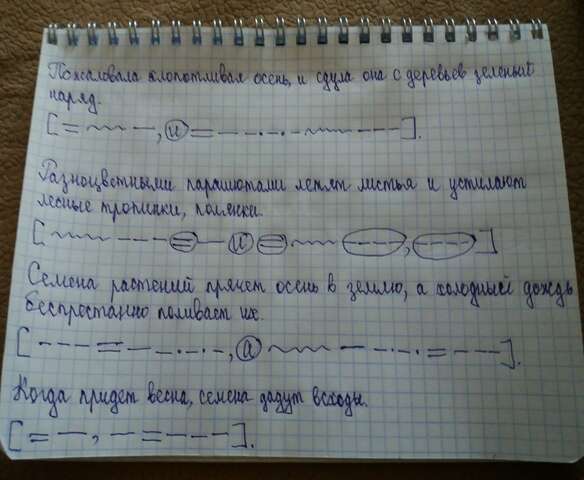 Пожаловала хлопотливая осень, и сдула она с деревьев зеленый
наряд.
[= ~~~ —, и = — –·–·– ~~~ – – –].
Разноцветными парашютами летят листья и устилают
лесные тропинки, полянки.
[~~~ – – – = — и = ~~~ – – –, – – –]
Семена растений прячет осень в землю, а холодный дождь
беспрестанно поливает их.
[– – – = — –·–·–, а ~~~ — –·–·– = – – –].
Когда придет весна, семена дадут всходы.
[= —, — = – – –].